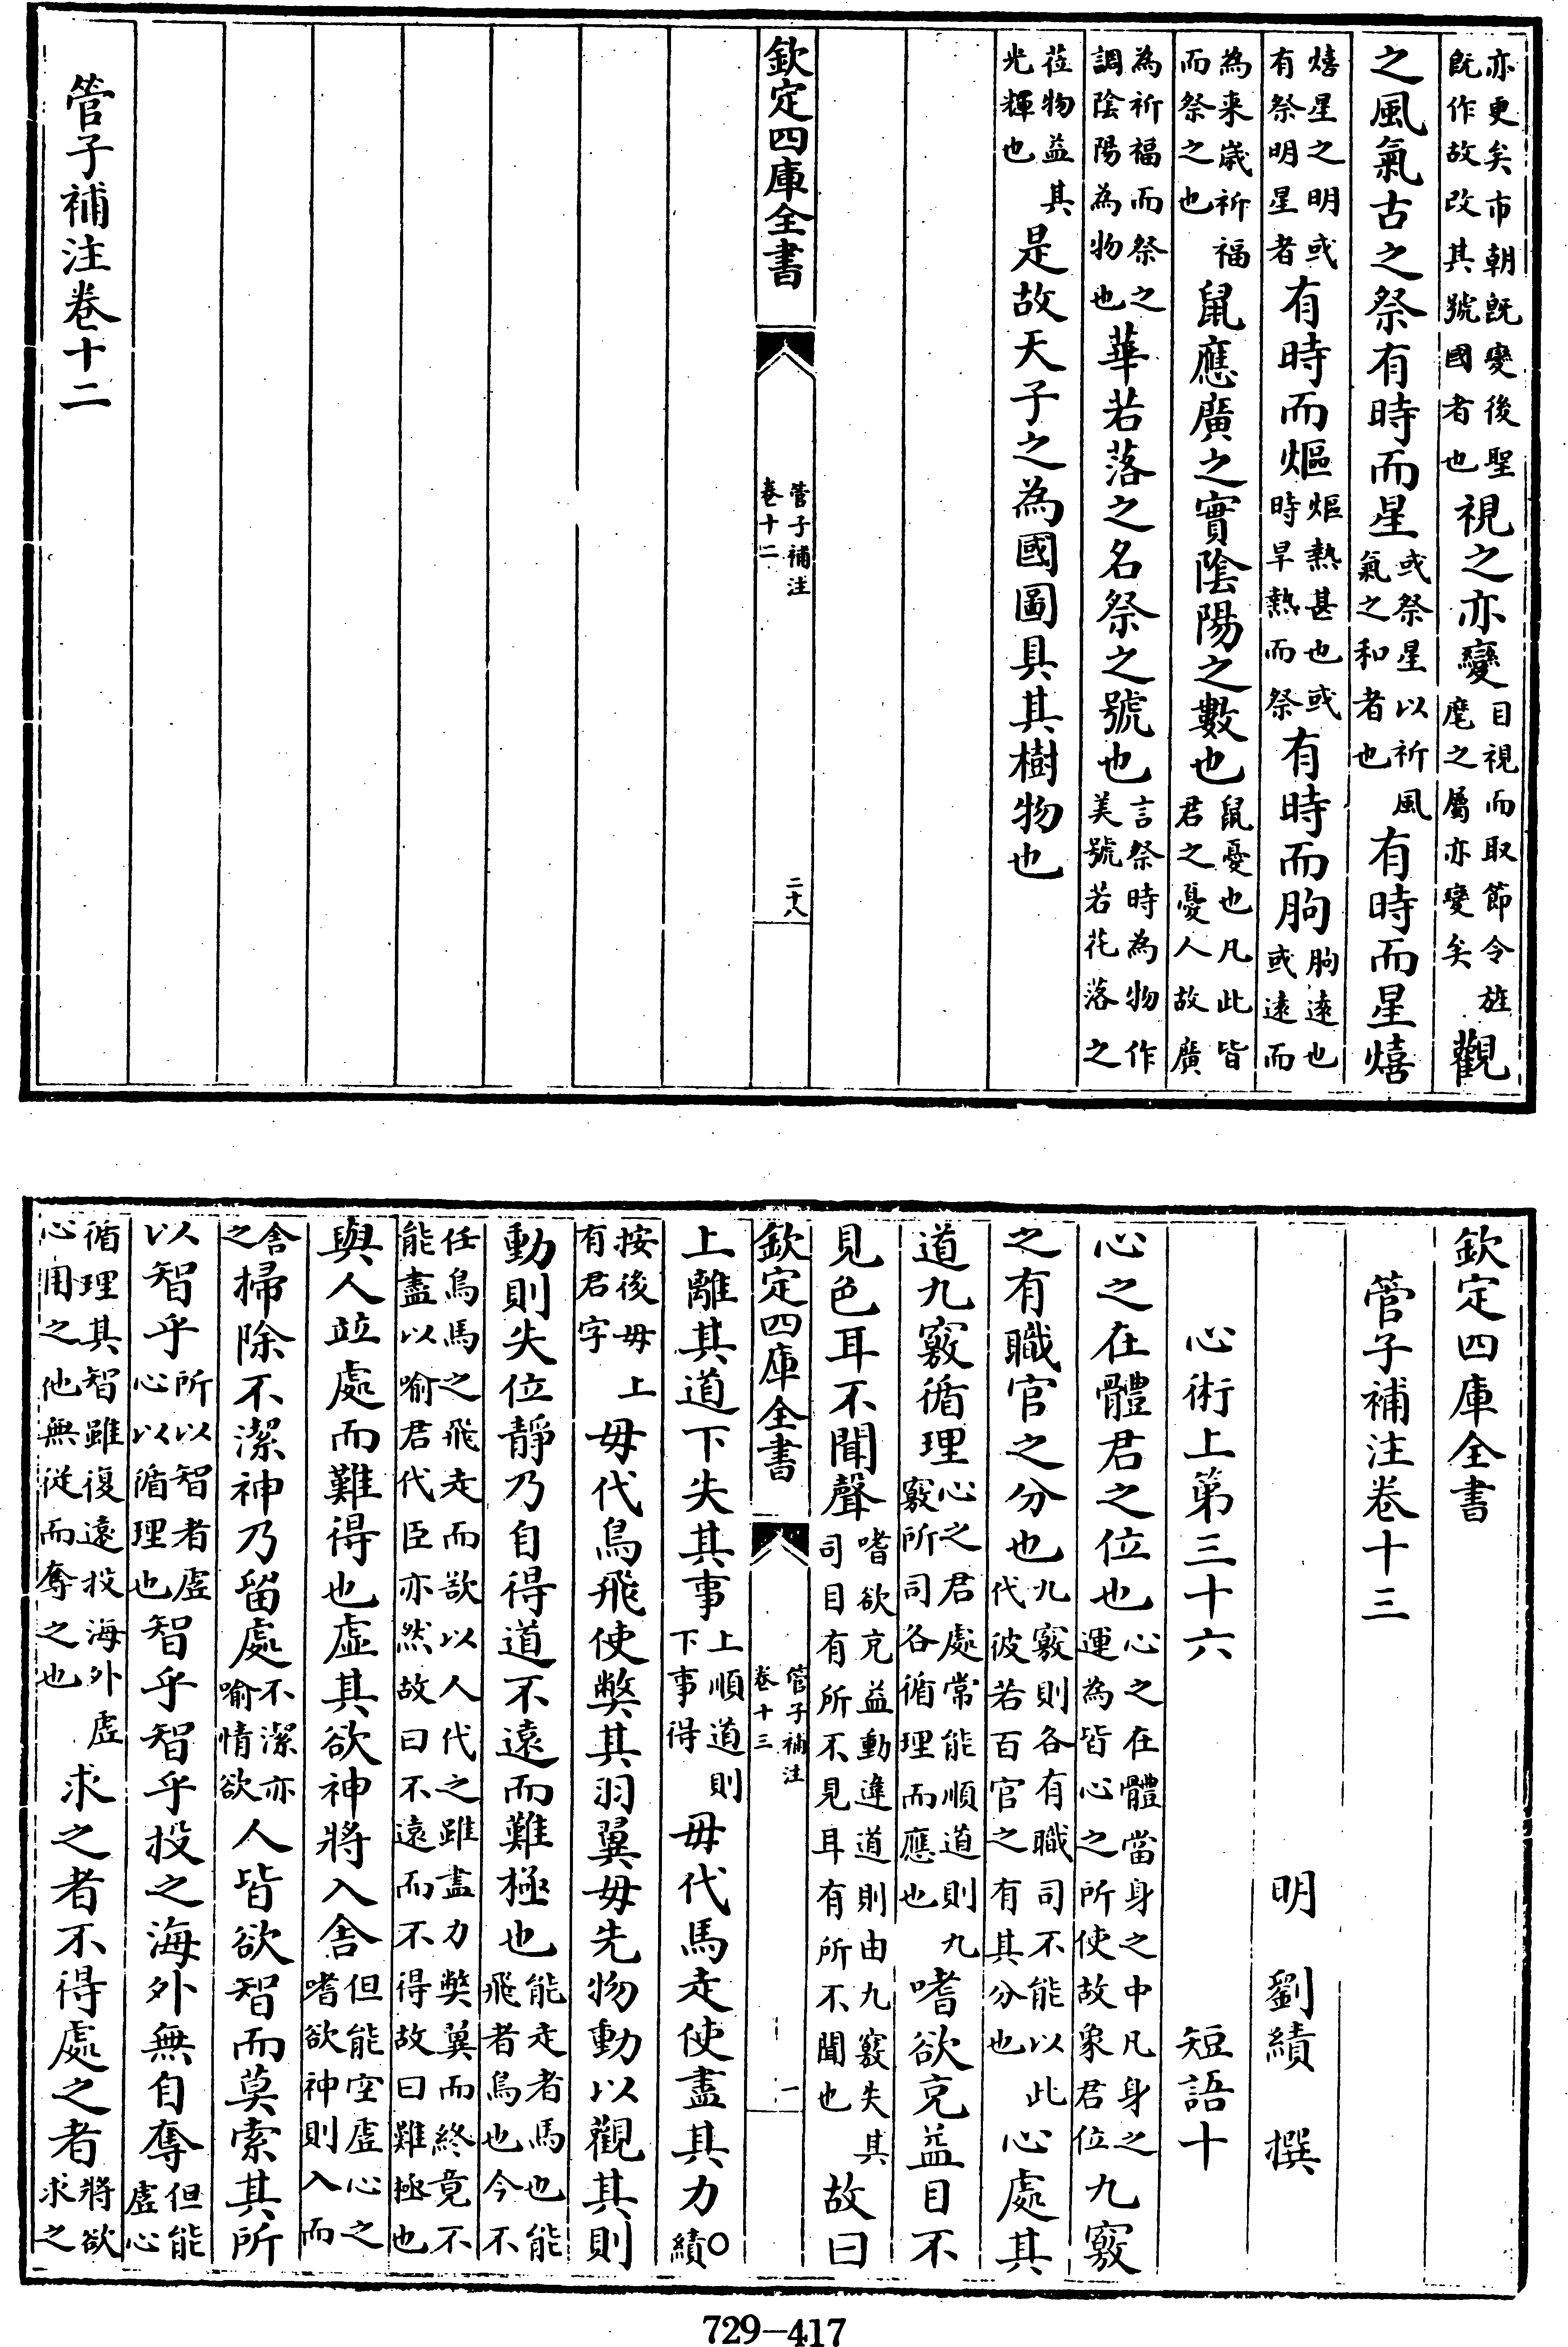 亦更矣市朝既變後聖
既作故改其號國者也
視之亦變
目視而取節令旌
麾之屬亦變矣
觀
之風氣古之祭有時而星
或祭星以祈風
氣之和者也
有時而星熺
熺星之明或
有祭明星者
有時而熰
熰熱甚也或
時旱熱而祭
有時而胊
胊遠也
或遠而
為来歳祈福
而祭之也
鼠應廣之實陰陽之數也
鼠憂也凡此皆
君之憂人故廣
為祈福而祭之
調陰陽為物也
華若落之名祭之號也
言祭時為物作
美號若花落之
莅物益其
光輝也
是故天子之為國圖具其樹物也
欽定四庫全書
管子補注
卷十二
二十八
管子補注卷十二
欽定四庫全書
管子補注卷十三
明 劉績 撰
心術上第三十六 短語十
心之在體君之位也
心之在體當身之中凡身之
運為皆心之所使故象君位
九竅
之有職官之分也
九竅則各有職司不能以此
代彼若百官之有其分也
心處其
道九竅循理
心之君處常能順道則九
竅所司各循理而應也
嗜欲充益目不
見色耳不聞聲
嗜欲充益動違道則由九竅失其
司目有所不見耳有所不聞也
故曰
欽定四庫全書
管子補注
卷十三
一
上離其道下失其事
上順道則
下事得
毋代馬走使盡其力
○
績
按後毋上
有君字
毋代鳥飛使獘其羽翼毋先物動以觀其則
動則失位靜乃自得道不遠而難極也
能走者馬也能
飛者鳥也今不
任鳥馬之飛走而欲以人代之雖盡力獘翼而終竟不
能盡以喻君代臣亦然故曰不遠而不得故曰難極也
與人竝處而難得也虛其欲神將入舍
但能空虛心之
嗜欲神則入而
舍
之
掃除不潔神乃留處
不潔亦
喻情欲
人皆欲智而莫索其所
以智乎
所以智者虛
心以循理也
智乎智乎投之海外無自奪
但能
虛心
循理其智雖復遠投海外虛
心用之他無從而奪之也
求之者不得處之者
將欲
求之
729-417